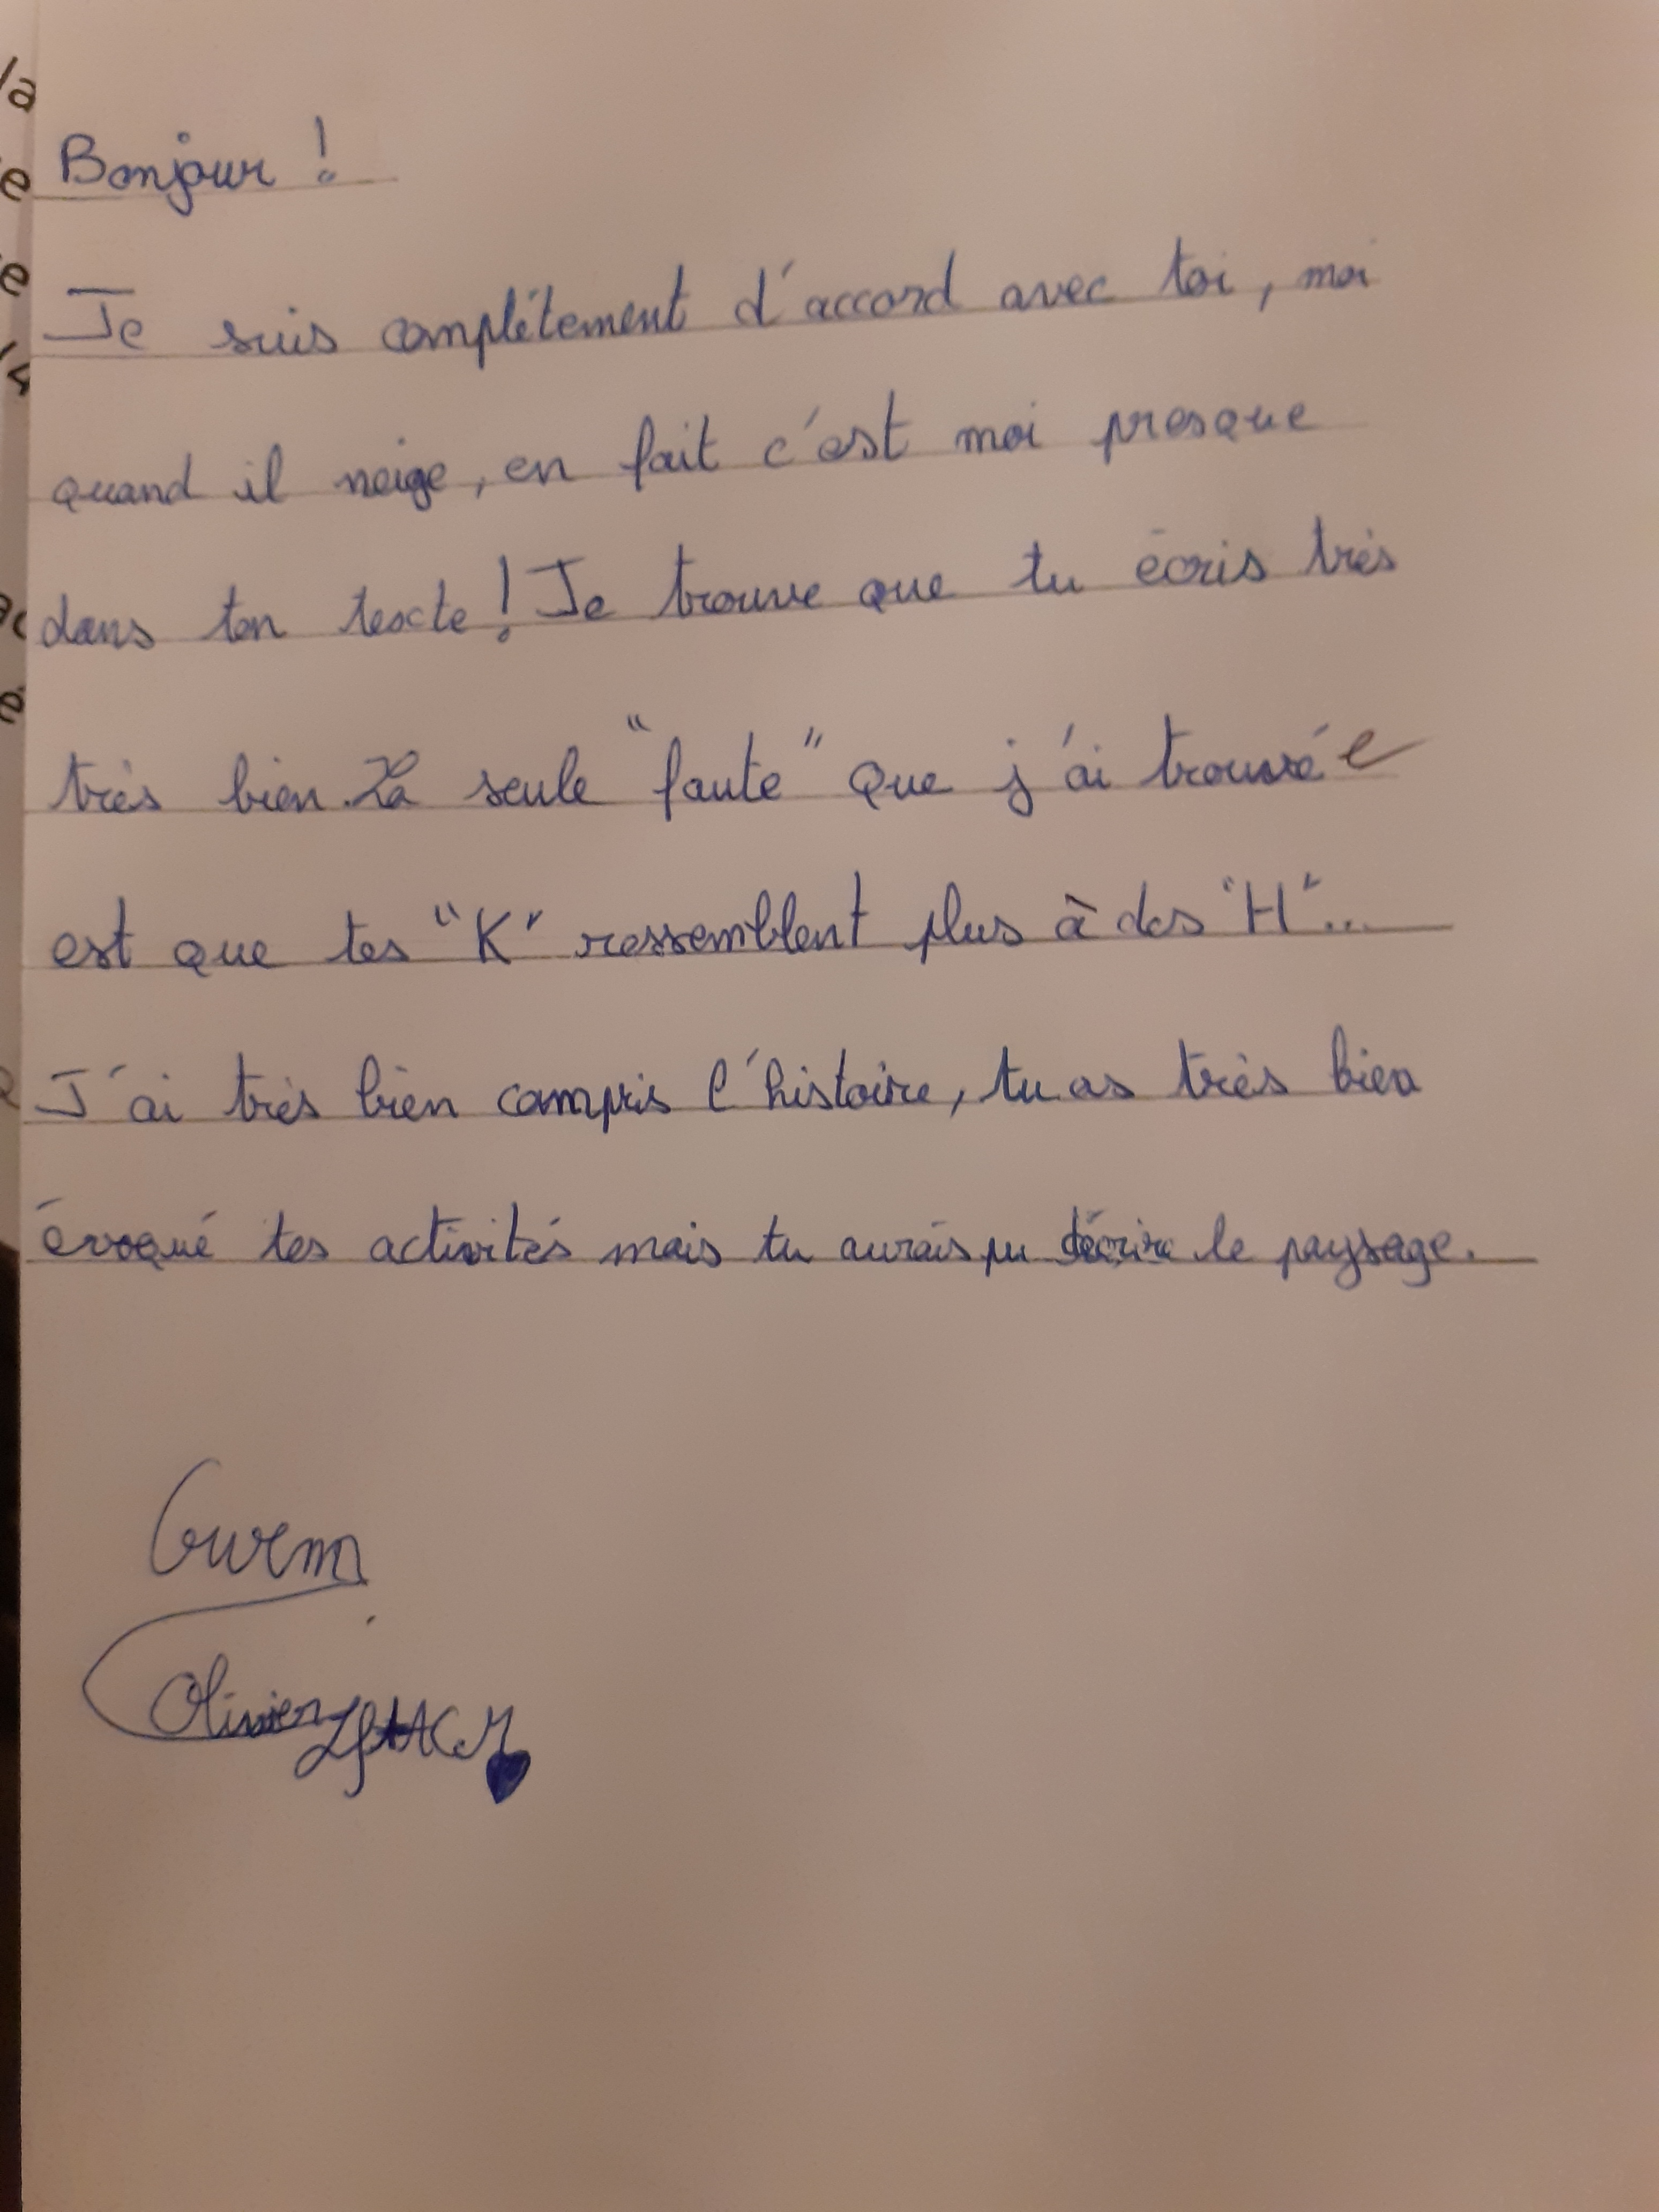 Bonjour !
Je suis complètement d'accord avec toi, moi
quand il neige, en fait c'est moi presque
dans ton texte ! Je trouve que tu écris très
très bien. La seule "faute" que j'ai trouvée
est que tes "K" ressemblent plus à des "H"...
J'ai très bien compris l'histoire, tu as très bien
évoqué tes activités mais tu aurais pu décrire le paysage.
Gwem
Olivier